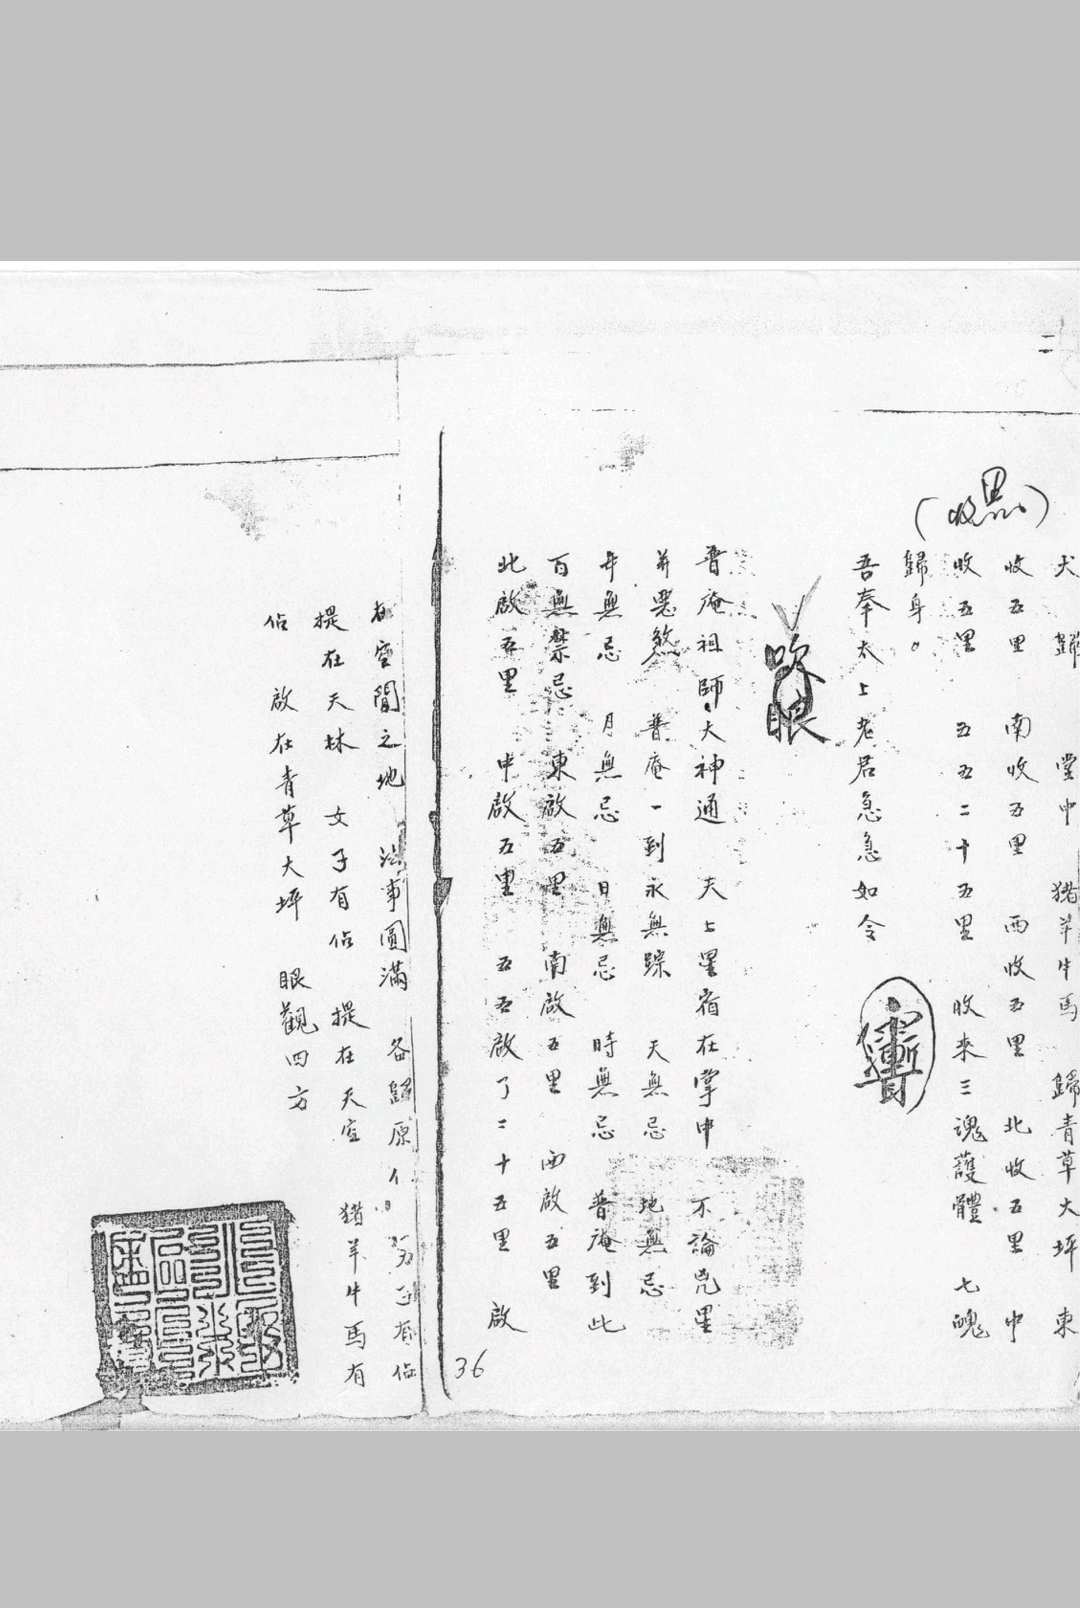 犬歸 堂中 猪羊牛馬 歸青草大坪 東
收五里 南收五里 西收五里 北收五里 中
收五里 五五二十五里 收來三魂護體 七魄
歸身。
吾奉太上老君急急如令
眼
普庵祖師大神通 天上星宿在掌中 不論兇星
并惡煞 普庵一到永無踪 天無忌 地無忌
年無忌 月無忌 日無忌 時無忌 普庵到此
百無禁忌 東啟五里 南啟五里 西啟五里
北啟五里 中啟五里 五五啟了二十五里 啟
在空間之地 法事圓滿 各歸原位 男子有佔
提在天林 女子有佔 提在天空 猪羊牛馬有
佔 啟在青草大坪 眼觀四方
36